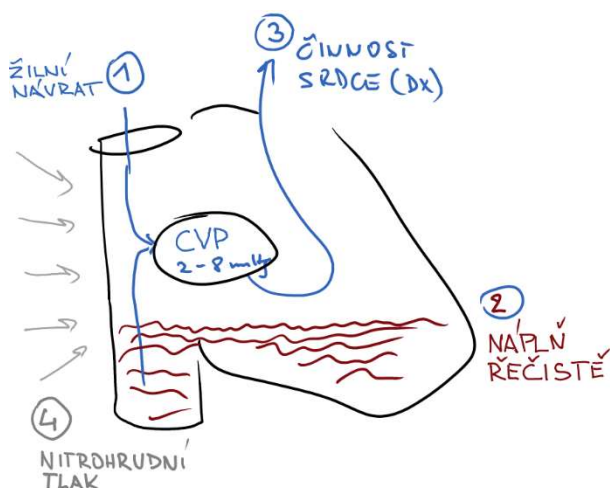 ① ŽILNÍ
NÁVRAT
③ ČINNOST
SRDCE (DX)
CVP
2-8 mmHg
② NÁPLŇ
ŘEČIŠTĚ
④ NITROHRUDNÍ
TLAK